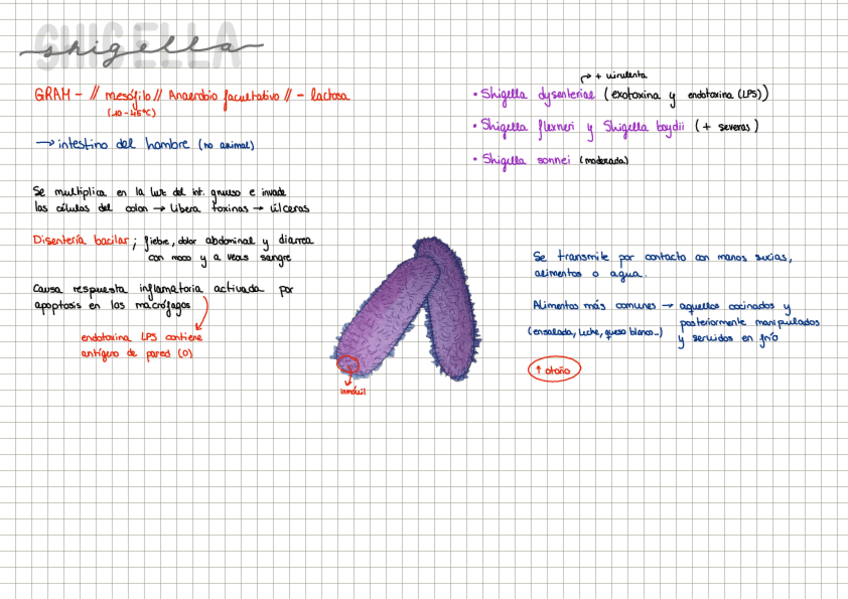 SHIGELLA
shigella
GRAM - // mesófilo // Anaerobio facultativo // - lactosa
(10-45°C)
→ intestino del hombre (no animal)
Se multiplica en la luz del int. grueso e invade
las células del colon → libera toxinas → úlceras
Disentería bacilar; fiebre, dolor abdominal y diarrea
con moco y a veces sangre
Causa respuesta inflamatoria activada por
apoptosis en los macrófagos
endotoxina LPS contiene
antígeno de pared (O)
inmóvil
→ + virulenta
• Shigella dysenteriae (exotoxina y endotoxina (LPS))
• Shigella flexneri y Shigella boydii (+ severas)
• Shigella sonnei (moderada)
Se transmite por contacto con manos sucias,
alimentos o agua.
Alimentos más comunes → aquellos cocinados y
(ensalada, leche, queso blanco...) posteriormente manipulados
y servidos en frío
↑ otoño